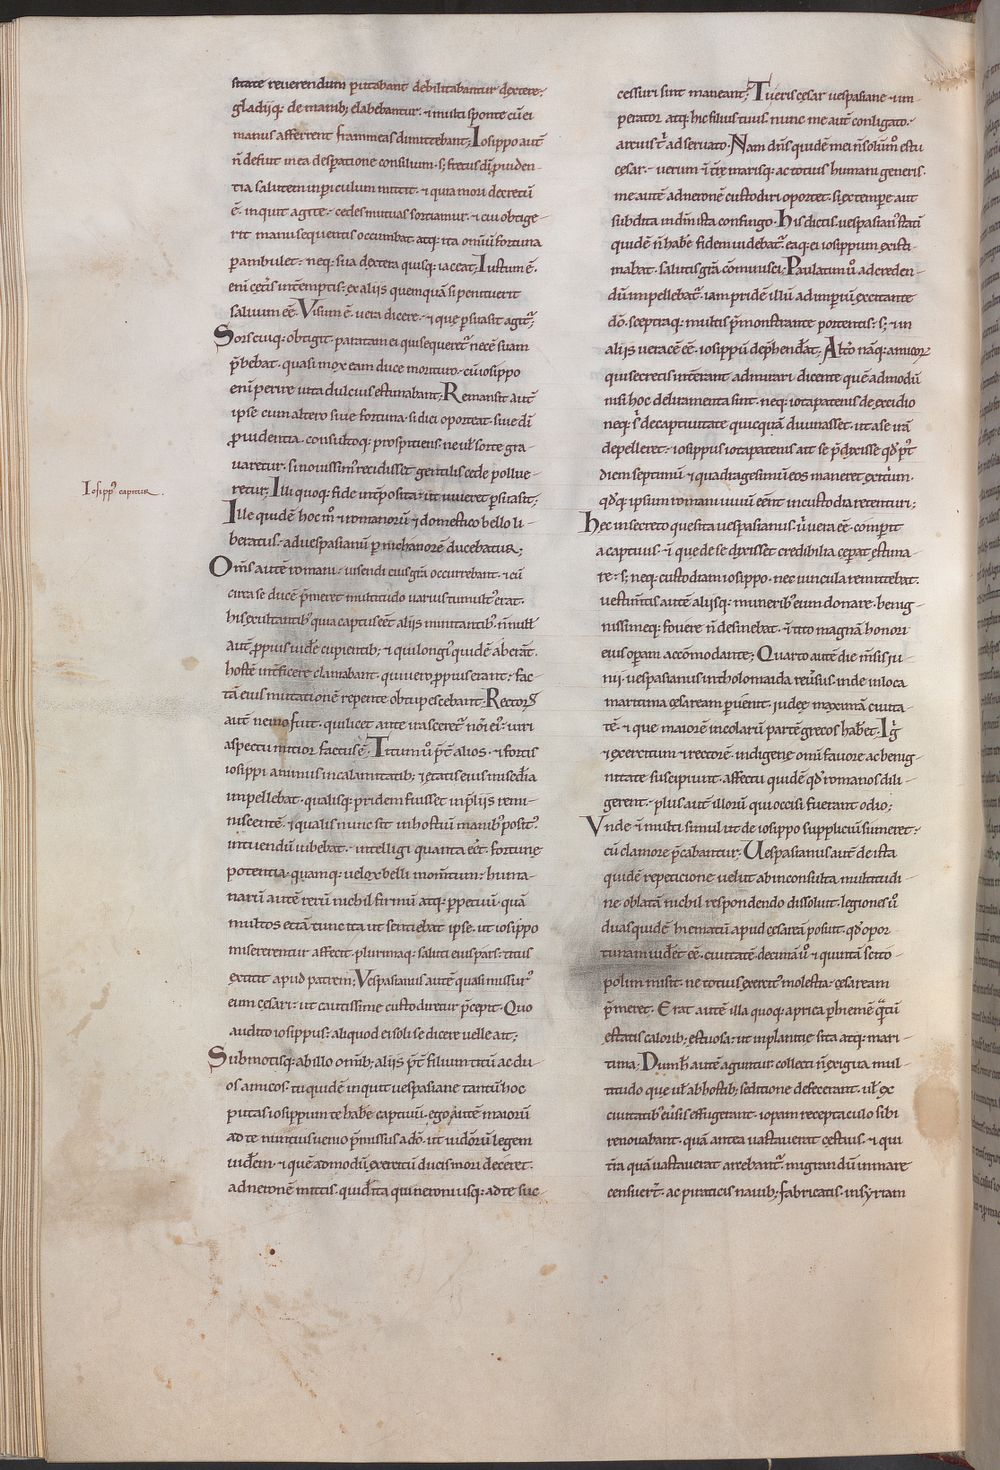 sitate reuerendum putabant debilitabantur dextere;
gladiiq; de manib; elabebantur. ⁊ multi sponte cū ei
manus afferrent frameas dimittebant; Iosippo aut̄
n̄ defuit in ea desperatione consilium. s; fretus dī prouiden-
tia salutem in periculum mittit. ⁊ quia mori decretū
ē. inquit agite. cedes mutuas sortiamur. ⁊ cui obtige-
rit manu sequentis occumbat. atq; ita omniū fortuna
perambulet. neq; sua dextera quisq; iaceat; Iustum ē.
eni ceteris int̄emptis. ex aliis quemquā si penituerit
saluum eē. Visum ē. uera dicere. ⁊ que persuasit agit̄;
Sors cuiq; obtigit. paratam ei qui sequeret̄ necē suam
p̄bebat. quasi mox eam duce morituro. cū iosippo
enī perire uita dulcius estimabant; Remansit aut̄
ipse cum altero siue fortuna. si dici oporteat. siue dī
prouidentia. consultoq; prospitiens. ne uł sorte gra-
uaretur. si nouissimꝰ recidisset gentilis cede pollue-
retur; Illi quoq; fide int̄posita. ut uiueret persuasit;
Ille quidē hoc mō ⁊ romanorū ⁊ domestico bello li-
beratus. ad uespasianū per nichanorē ducebatur;
Om̄s autē romani. uisendi eius grā occurrebant. ⁊ cū
circa se ducē p̄meret multitudo uarius tumultꝰ erat.
his exultantibꝰ quia captus eēt aliis minitantibꝰ. n̄nułł
aut̄ propius uidēe cupientib; ⁊ qui longiꝰ quidē aberant̄.
hostē int̄ficere clamabant. qui uero propius erant. fac-
tā eius mutationē repente obstupescebant. Rectorꝫ
aut̄ nemo fuit. qui licet ante irasceret̄ n̄ ei ꝰ. uiri
aspectu mitior factus ē. Titum ū p̄t̄ alios. ⁊ fortis
iosippi animus in calamitatib; ⁊ etatis eius miseria
impellebat. qualisq; pridem fuisset in p̄liis remi-
niscentē. ⁊ qualis nunc sit in hostiū manibꝰ positꝰ.
intuendū iubebat. intelligi quanta eēt. fortune
potentia. quamq; uelox belli momtum. huma-
narū autē rerū nichil firmū atq; perpetuū. quā
multos etiā tunc ita ut sentiebat ipse. ut iosippo
misererentur affecit. plurimaq; saluti eius pars. titus
extitit apud patrem; Vespasianus autē quasi missurꝰ
eum cesari. ut cautissime custodiretur p̄cepit. Quo
audito iosippus. aliquod ei soli se dicere uelle ait;
Submotisq; ab illo om̄ib; aliis p̄t̄ filium titū ac du-
os amicos. tu quidē inquit uespasiane tantū hoc
putas iosippum te habēe captiuū. ego autē maiorū
ad te nuntius uenio p̄missus a dō. ut iudeorū legem
uidēm. ⁊ quē admodū exercitū ducis mori deceret.
ad neronē mittis. quid ita qui neroni usq; ad te suc-
Iosippꝰ capitur.
cessuri sint maneant; Tu eris cesar uespasiane. ⁊ im-
perator. atq; hic filius tuus. nunc me aut̄ conligato.
artius t̄ ad seruato. Nam dn̄s quidē mei n̄ solum es tu
cesar. uerum ⁊ t̄re marisq; ac totius humani generis.
me autē ad neronē custodiri oportet. si ex tempore aut
subdita in dm̄ ista confingo. His dictis uespasianꝰ stati
quidē n̄ habēe fidem uidebat̄. eaq; ei iosippum existi-
mabat. salutis grā com̄inisci; Paulatim ū ad creden-
dū impellebat̄. iam pridē illū ad imperiū excitante
dō. sceptraq; multis p̄monstrante portentis. s; ⁊ in
aliis ueracē eē. iosippū dep̄hendit̄. Alt̄o nāq; amicorꝫ
qui secretis int̄erant. admirari. dicente quē admodū
nisi hoc deliramenta sint. neq; iotapatenis de excidio
neq; s̄ de captiuitate quicquā diuinasset. ut a se irā
depelleret. iosippus iotapatenis ait se p̄dixisse qd̄ pt̄
diem septimū ⁊ quadragesimū eos maneret exciūm.
qd̄q; ipsum romani uiuū eēnt in custodia retenturi;
Hec in secreto quesita uespasianus. ū uera eē. comperit
a captiuis. ⁊ que de se dixisset credibilia ceperat estima-
re. s; neq; custodiam iosippo. nec uincula remittebat.
uestim̄tis autē aliisq; muneribꝰ eum donare. benig-
nissimeq; fouere n̄ desinebat. ⁊ tito magnā honori
eius operam accōmodante; Quarto autē die m̄sis iu-
nii. uespasianus in tholomaida reūsus. inde in loca
maritima cesaream peruenit. iudee maximā ciuita-
tē. ⁊ que maiorē incolarū partē grecos habet; Ig̈
⁊ exercitum ⁊ rectorē. indigene om̄i fauore ac benig-
nitate suscipiunt. affectu quidē qd̄ romanos dili-
gerent. plus aut̄ illorū qui occisi fuerant odio;
Vnde ⁊ multi simul ut de iosippo supplicium sumeret.
cū clamore p̄cabantur. Vespasianus aut̄ de ista
quidē repeticione uelut ab inconsulta multitudi-
ne oblatā. nichil respondendo dissoluit. legiones ū
duas quidē hiematū apud cesareā posuit. qd̄ opor-
tunam uidēt eē. ciuitatē. decimā ū ⁊ quintā scito-
polim misit. ne totius exercitꝰ molesta. cesaream
p̄meret. Erat autē illa quoq; aprica per hiemē q̄tū
estatis calorib; estuosa. ut in planitie sita atq; mari-
tima. Dum h̄ autē aguntur. collecti n̄ exigua mul-
titudo que uł ab hostib; seditione defecerant. uł ex
ciuitatibꝰ eūsis effugerant. iopam receptaculo sibi
renouabant. quā antea uastauerat cestius. ⁊ qui
t̄ra quā uastauerat arcebant̄. migrandū in mare
censuer̄t. ac piraticis nauib; fabricatis. in syriam